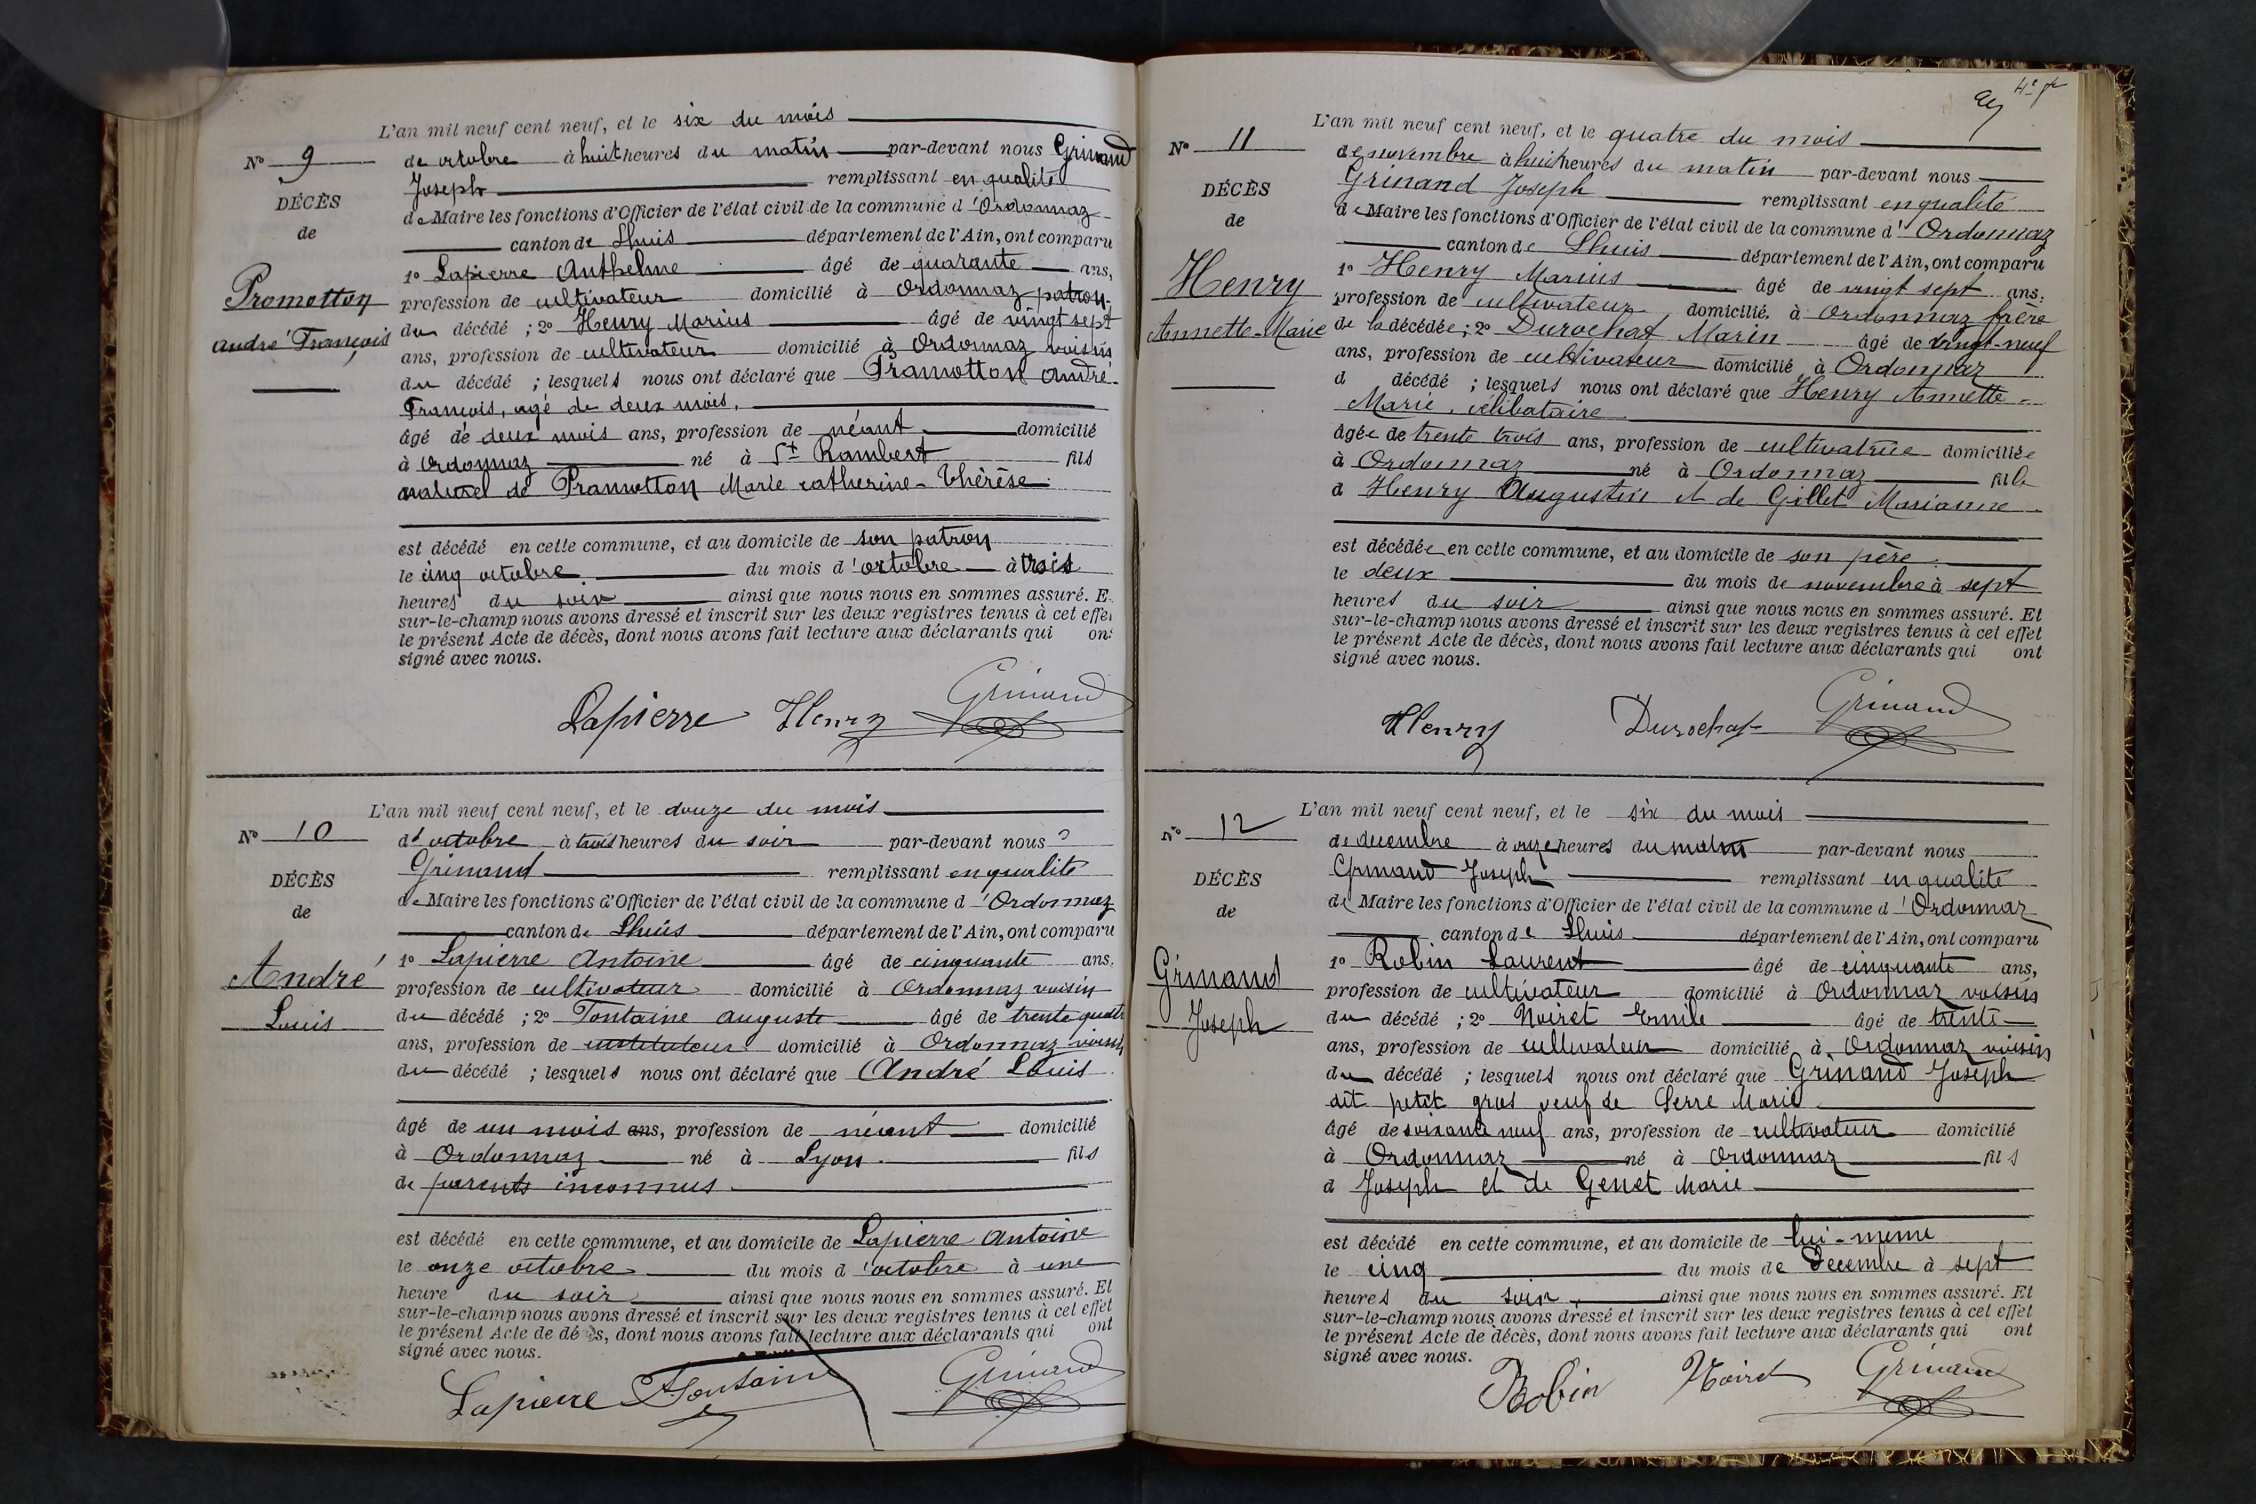 L'an mil neuf cent neuf, et le six du mois
No 9
de octobre à huit heures du matin par-devant nous Grinand
Joseph remplissant en qualité
DÉCÈS
de Maire les fonctions d'Officier de l'état civil de la commune d'Ordonnaz
de
canton de Lhuis département de l'Ain, ont comparu
1o Lapierre Anthelme âgé de quarante ans,
Pramotton
profession de cultivateur domicilié à Ordonnaz patron
André François
du décédé ; 2o Henry Marius âgé de vingt sept
ans, profession de cultivateur domicilié à Ordonnaz voisin
du décédé ; lesquels nous ont déclaré que Pramotton André
François, agé de deux mois,
âgé de deux mois ans, profession de néant domicilié
à Ordonnaz né à St Rambert fils
naturel de Pramotton Marie Catherine-Thérèse
est décédé en cette commune, et au domicile de son patron
le cinq octobre du mois d'octobre à trois
heures du soir ainsi que nous nous en sommes assuré. E
sur-le-champ nous avons dressé et inscrit sur les deux registres tenus à cet effe
le présent Acte de décès, dont nous avons fait lecture aux déclarants qui ont
signé avec nous.
Lapierre Henry Grinand
L'an mil neuf cent neuf, et le douze du mois
No 10
d'octobre à trois heures du soir par-devant nous
Grinand remplissant en qualité
DÉCÈS
de Maire les fonctions d'Officier de l'état civil de la commune d'Ordonnaz
de
canton de Lhuis département de l'Ain, ont comparu
1o Lapierre Antoine âgé de cinquante ans.
André
profession de cultivateur domicilié à Ordonnaz voisin
Louis
du décédé ; 2o Fontaine Auguste âgé de trente quatre
ans, profession de instituteur domicilié à Ordonnaz voisin
du décédé ; lesquels nous ont déclaré que André Louis
âgé de un mois ans, profession de néant domicilié
à Ordonnaz né à Lyon fils
de parents inconnus
est décédé en cette commune, et au domicile de Lapierre Antoine
le onze octobre du mois d'octobre à une
heure du soir ainsi que nous nous en sommes assuré. Et
sur-le-champ nous avons dressé et inscrit sur les deux registres tenus à cet effet
le présent Acte de décès, dont nous avons fait lecture aux déclarants qui ont
signé avec nous.
Lapierre A. Fontaine Grinand
4e
L'an mil neuf cent neuf, et le quatre du mois
No 11
de novembre à huit heures du matin par-devant nous
Grinand Joseph remplissant en qualité
DÉCÈS
de Maire les fonctions d'Officier de l'état civil de la commune d'Ordonnaz
de
canton de Lhuis département de l'Ain, ont comparu
1o Henry Marius âgé de vingt sept ans,
Henry
profession de cultivateur domicilié à Ordonnaz frère
Annette-Marie
de la décédée ; 2o Durochat Marin âgé de vingt-neuf
ans, profession de cultivateur domicilié à Ordonnaz
d décédé ; lesquels nous ont déclaré que Henry Annette
Marie, célibataire
âgée de trente trois ans, profession de cultivatrice domiciliée
à Ordonnaz né à Ordonnaz fille
d Henry Augustin et de Gillet Marianne
est décédée en cette commune, et au domicile de son père
le deux du mois de novembre à sept
heures du soir ainsi que nous nous en sommes assuré. Et
sur-le-champ nous avons dressé et inscrit sur les deux registres tenus à cet effet
le présent Acte de décès, dont nous avons fait lecture aux déclarants qui ont
signé avec nous.
Henry Durochat Grinand
L'an mil neuf cent neuf, et le six du mois
No 12
de décembre à onze heures du matin par-devant nous
Grinand Joseph remplissant en qualité
DÉCÈS
de Maire les fonctions d'Officier de l'état civil de la commune d'Ordonnaz
de
canton de Lhuis département de l'Ain, ont comparu
1o Robin Laurent âgé de cinquante ans,
Grinand
profession de cultivateur domicilié à Ordonnaz voisin
Joseph
du décédé ; 2o Noiret Emile âgé de trente
ans, profession de cultivateur domicilié à Ordonnaz voisin
du décédé ; lesquels nous ont déclaré que Grinand Joseph
dit petit gros veuf de Serre Marie
âgé de soixante neuf ans, profession de cultivateur domicilié
à Ordonnaz né à Ordonnaz fils
d Joseph et de Genet Marie
est décédé en cette commune, et au domicile de lui-même
le cinq du mois de Décembre à sept
heures du soir ainsi que nous nous en sommes assuré. Et
sur-le-champ nous avons dressé et inscrit sur les deux registres tenus à cet effet
le présent Acte de décès, dont nous avons fait lecture aux déclarants qui ont
signé avec nous.
Robin Noiret Grinand